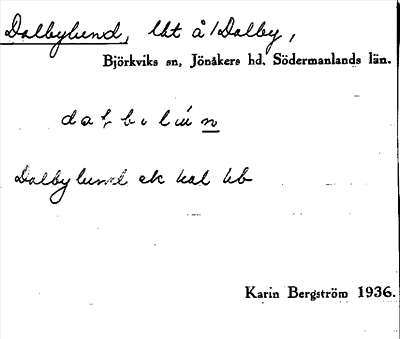 Dalbylund, lht å / Dalby,
Björkviks sn, Jönåkers hd, Södermanlands län.
Dalbylund ek kal hb
Karin Bergström 1936.